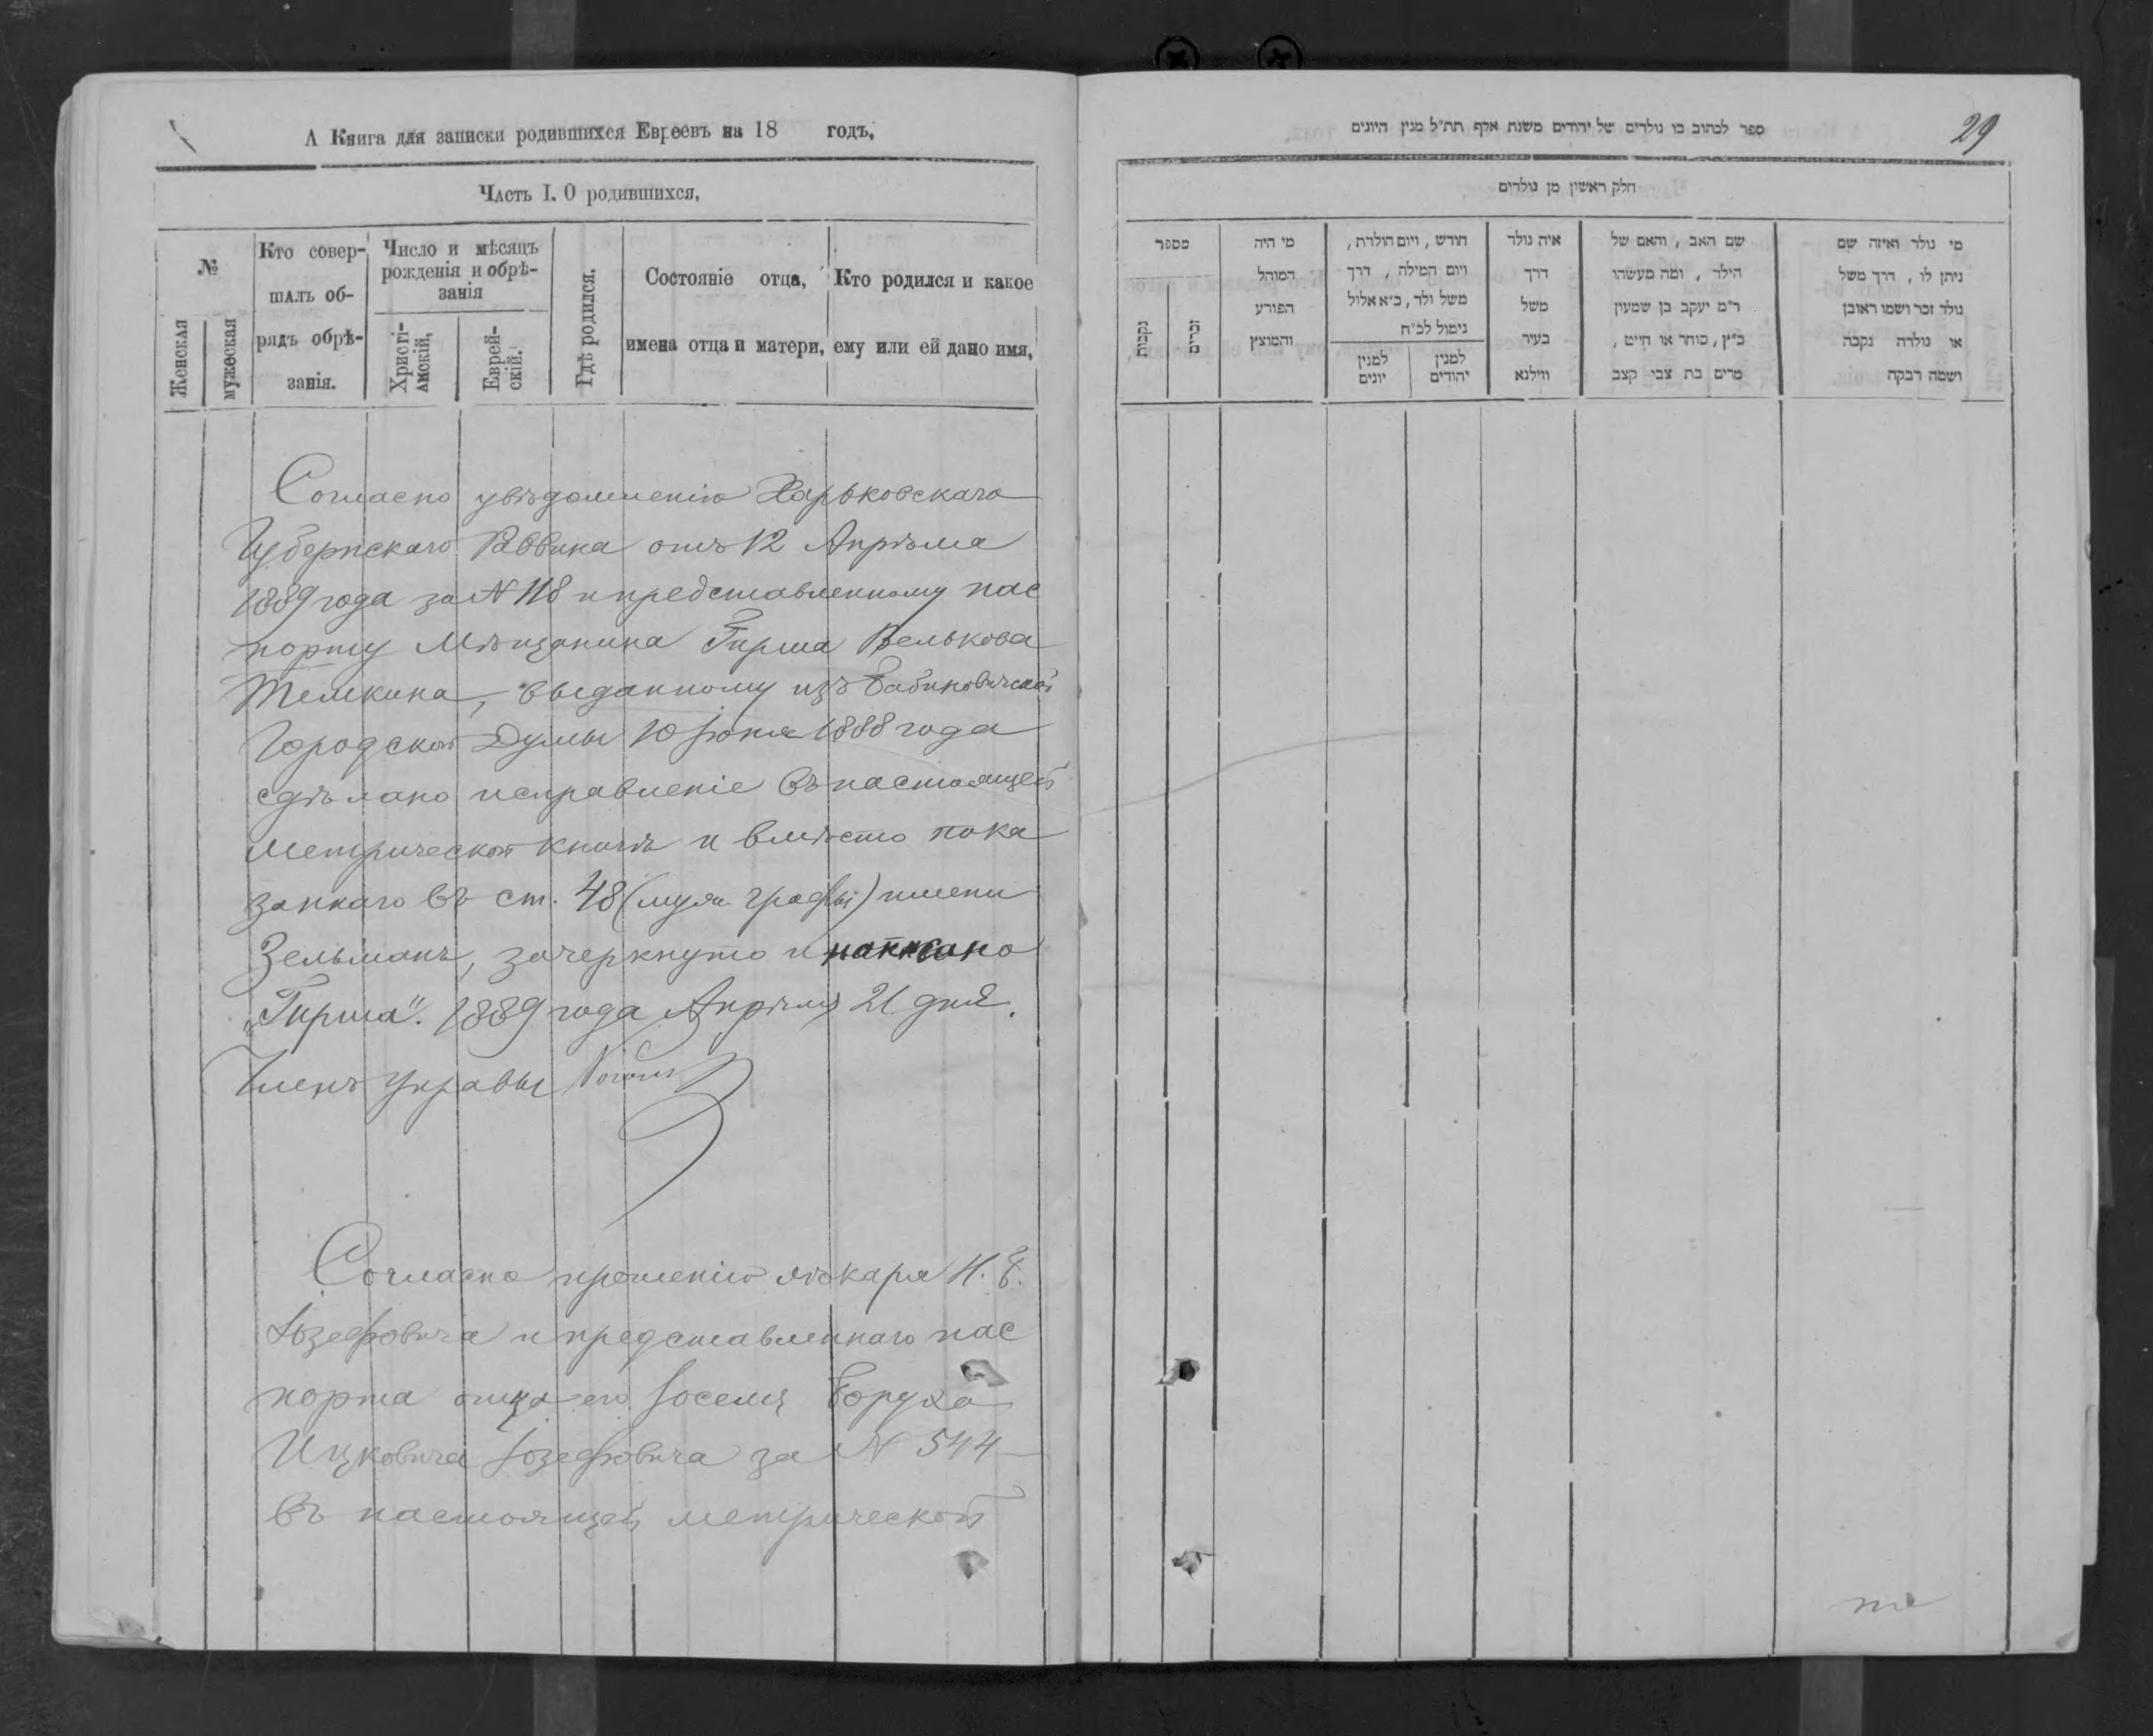 А Книга для записки родившихся Евреевъ на 18 годъ,
Часть I. О родившихся,
№
Женская
мужеская
Кто совер-
шалъ об-
рядъ обрѣ-
занія.
Число и мѣсяцъ
рожденія и обрѣ-
занія
Христі-
анскій,
Еврей-
скій.
Гдѣ родился.
Состояніе отца,
имена отца и матери,
Кто родился и какое
ему или ей дано имя,
Согласно увѣдомленію Харьковскаго
Губернскаго Раввина отъ 12 Апрѣля
1889 года за N 118 и представленному пас
порту Мѣщанина Гирша Велькова
Темкина, выданному изъ Бабиновичской
Городской Думы 10 Іюня 1888 года
сдѣлано исправленіе въ настоящей
метрической книгѣ и вмѣсто пока
заннаго въ ст. 48 (муж. графы) имени
Зельманъ, зачеркнуто и написано
„Гирша". 1889 года Апрѣля 21 дня.
Членъ управы
Согласно прошенію лѣкаря И. Б.
Іозефовича и представленнаго пас
порта отца его Іоселя Боруха
Ицковича Іозефовича за N 544
въ настоящей метрической
ספר לכתוב בו נולדים של יהודים משנת אלף תת״ל מנין היונים
29
חלק ראשון מן נולדים
מספר
נקבות
זכרים
מי היה
המוהל
הפורע
והמוצץ
חודש, ויום הולדת,
ויום המילה, דרך
משל ולד, כ״א אלול
נימול לכ״ח
למנין
יונים
למנין
יהודים
איה נולד
דרך
משל
בעיר
ווילנא
שם האב, והאם של
הילד, ומה מעשהו
ר״מ יעקב בן שמעון
כ״ץ, סוחר או חייט,
מרים בת צבי קצב
מי נולד ואיזה שם
ניתן לו, דרך משל
נולד זכר ושמו ראובן
או נולדה נקבה
ושמה רבקה